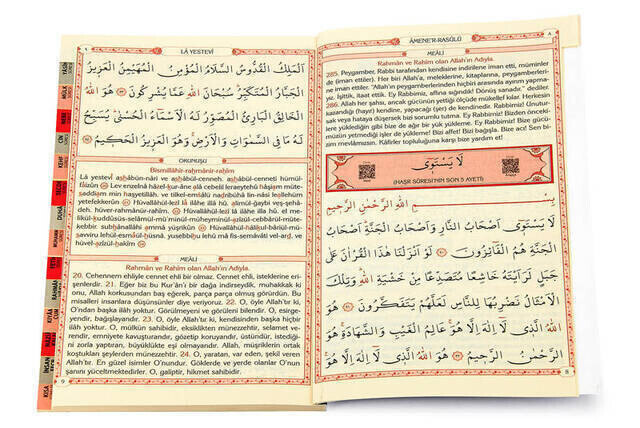 ٨
ÂMENE'R-RASÛLÜ
MEÂLİ
Rahman ve Rahim olan Allah'ın Adıyla.
285. Peygamber, Rabbi tarafından kendisine indirilene iman etti, müminler
de (iman ettiler). Her biri Allah'a, meleklerine, kitaplarına, peygamberleri-
ne iman ettiler. "Allah'ın peygamberlerinden hiçbiri arasında ayırım yapma-
yız. İşittik, itaat ettik. Ey Rabbimiz, affına sığındık! Dönüş sanadır." dediler.
286. Allah her şahsı, ancak gücünün yettiği ölçüde mükellef kılar. Herkesin
kazandığı (hayır) kendine, yapacağı (şer) de kendinedir. Rabbimiz! Unutur-
sak veya hataya düşersek bizi sorumlu tutma. Ey Rabbimiz! Bizden önceki-
lere yüklediğin gibi bize de ağır bir yük yükleme. Ey Rabbimiz! Bize gücü-
müzün yetmediği işler de yükleme! Bizi affet! Bizi bağışla. Bize acı! Sen bi-
zim mevlâmızsın. Kâfirler topluluğuna karşı bize yardım et!
لَا يَسْتَوٖى
(HAŞR SÛRESİ'NİN SON 5 AYETİ)
بِسْــــــــمِ اللّٰهِ الرَّحْمٰنِ الرَّحٖيمِ
لَا يَسْتَوٖٓى اَصْحَابُ النَّارِ وَاَصْحَابُ الْجَنَّةِ اَصْحَابُ
الْجَنَّةِ هُمُ الْفَٓائِزُونَ ﴿٢٠﴾ لَوْ اَنْزَلْنَا هٰذَا الْقُرْاٰنَ عَلٰى
جَبَلٍ لَرَاَيْتَهُ خَاشِعًا مُتَصَدِّعًا مِنْ خَشْيَةِ اللّٰهِ وَتِلْكَ
الْاَمْثَالُ نَضْرِبُهَا لِلنَّاسِ لَعَلَّهُمْ يَتَفَكَّرُونَ ﴿٢١﴾ هُوَ
اللّٰهُ الَّذٖى لَٓا اِلٰهَ اِلَّا هُوَ عَالِمُ الْغَيْبِ وَالشَّهَادَةِ هُوَ
الرَّحْمٰنُ الرَّحٖيمُ ﴿٢٢﴾ هُوَ اللّٰهُ الَّذٖى لَٓا اِلٰهَ اِلَّا هُوَ
8
٩
LÂ YESTEVÎ
اَلْمَلِكُ الْقُدُّوسُ السَّلَامُ الْمُؤْمِنُ الْمُهَيْمِنُ الْعَزٖيزُ
الْجَبَّارُ الْمُتَكَبِّرُ سُبْحَانَ اللّٰهِ عَمَّا يُشْرِكُونَ ﴿٢٣﴾ هُوَ اللّٰهُ
الْخَالِقُ الْبَارِئُ الْمُصَوِّرُ لَهُ الْاَسْمَٓاءُ الْحُسْنٰى يُسَبِّحُ
لَهُ مَا فِى السَّمٰوَاتِ وَالْاَرْضِ وَهُوَ الْعَزٖيزُ الْحَكٖيمُ ﴿٢٤﴾
OKUNUŞU
Bismillâhir-rahmânir-rahîm
Lâ yestevî ashâbün-nâri ve ashâbül-cenneh. ashâbül-cenneti hümül-
fâizûn (20) Lev enzelnâ hâzel-kur-âne alâ cebelil leraeytehû hâşiam müte-
saddiam min haşyetillâh. ve tilkel-emsâlü nadribühâ lin-nâsi leallehüm
yetefekkerûn (21) Hüvallâhül-lezî lâ ilâhe illâ hû. alimül-ğaybi veş-şehâ-
deh. hüver-rahmânür-rahîm. (22) Hüvallâhül-lezî lâ ilâhe illâ hû. el me-
likül-kuddûsüs-selâmül-mü'minül-müheyminül-azîzül-cebbârul-müte-
kebbir. subhânallâhi ammâ yüşrikûn (23) Hüvallâhül-hâlikul-bâriül-mü-
savviru lehül-esmâül-hüsnâ. yusebbihu lehû mâ fis-semâvâti vel-ard. ve
hüvel-azîzül-hakîm (24)
MEÂLİ
Rahman ve Rahim olan Allah'ın Adıyla.
20. Cehennem ehliyle cennet ehli bir olmaz. Cennet ehli, isteklerine eri-
şenlerdir. 21. Eğer biz bu Kur'ân'ı bir dağa indirseydik, muhakkak ki
onu, Allah korkusundan baş eğerek, parça parça olmuş görürdün. Bu
misalleri insanlara düşünsünler diye veriyoruz. 22. O, öyle Allah'tır ki,
O'ndan başka ilâh yoktur. Görülmeyeni ve görüleni bilendir. O, esirge-
yendir, bağışlayandır. 23. O, öyle Allah'tır ki, kendisinden başka hiçbir
ilâh yoktur. O, mülkün sahibidir, eksiklikten münezzehtir, selamet ve-
rendir, emniyete kavuşturandır, gözetip koruyandır, üstündür, istediği-
ni zorla yaptıran, büyüklükte eşi olmayandır. Allah, müşriklerin ortak
koştukları şeylerden münezzehtir. 24. O, yaratan, var eden, şekil veren
Allah'tır. En güzel isimler O'nundur. Göklerde ve yerde olanlar O'nun
şanını yüceltmektedirler. O, galiptir, hikmet sahibidir.
9
YÂSÎN
MÜLK
NEBE
CİN
KEHF
DUHÂN
FETİH
RAHMÂN
KIYÂME
İNSAN
KISA